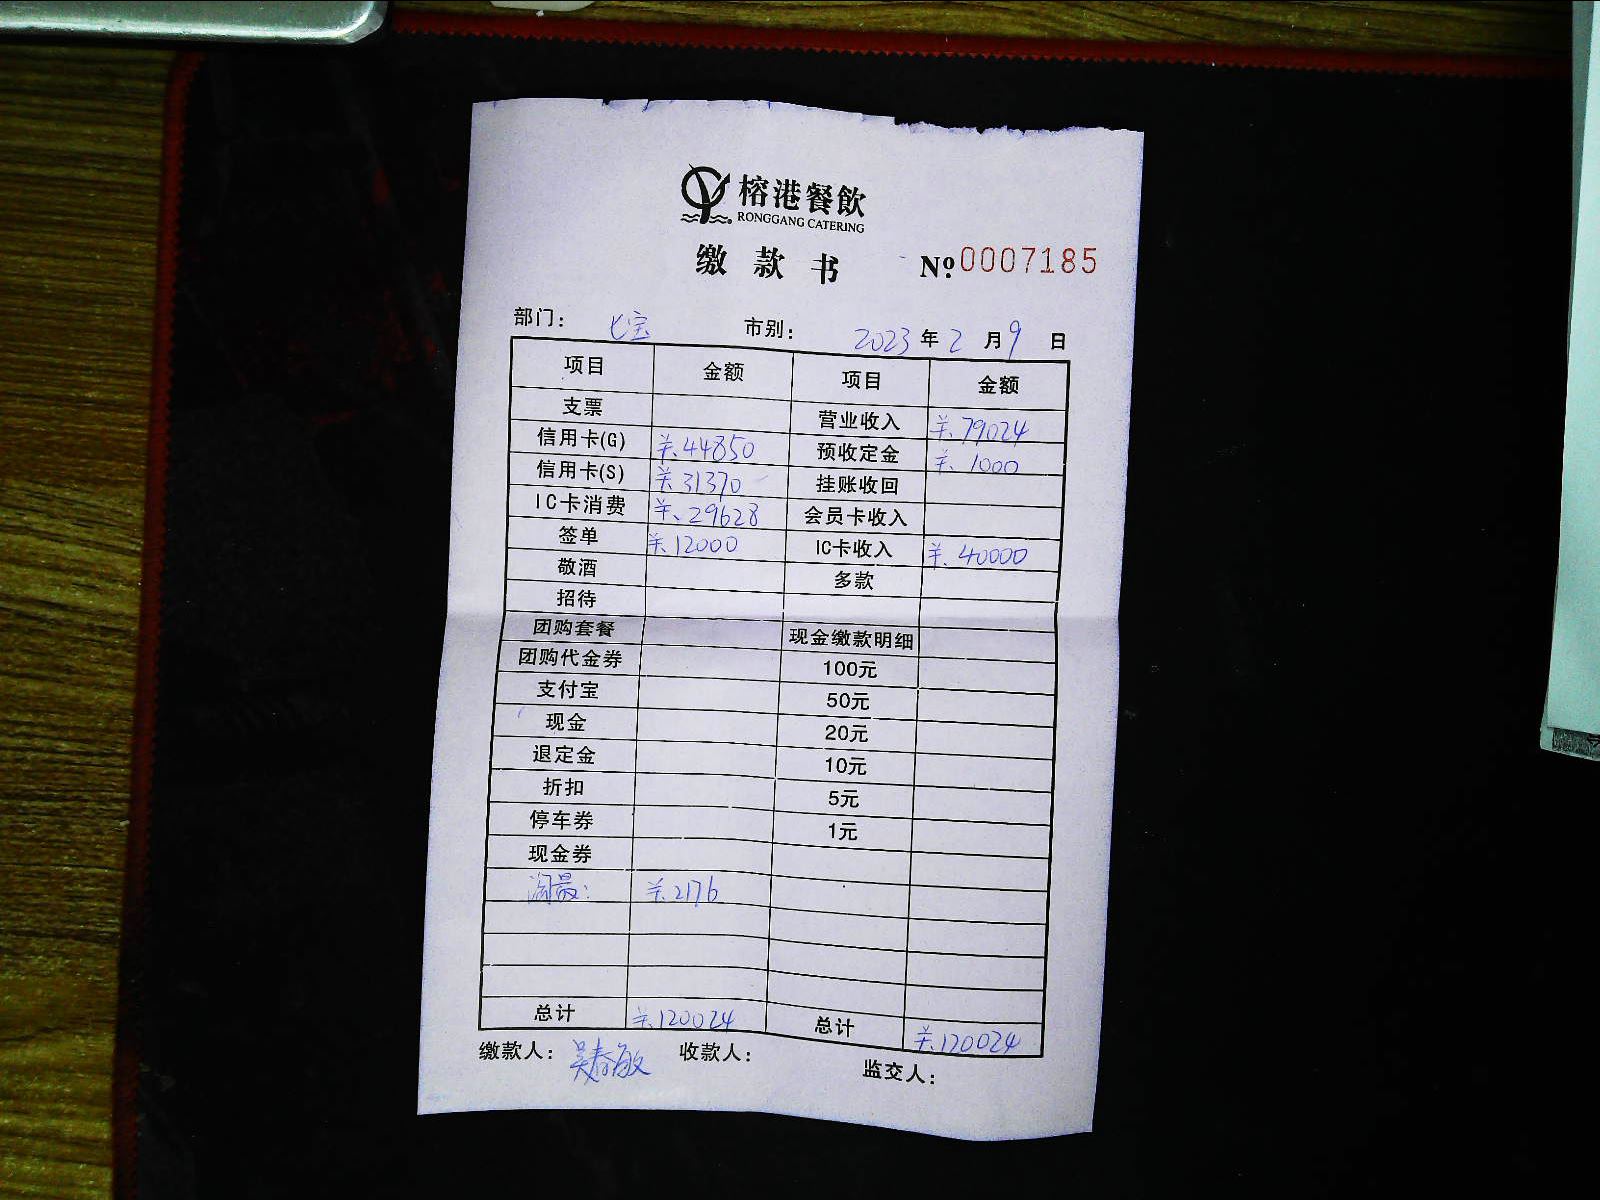 榕港餐飲
RONGGANG CATERING
缴款书 №0007185
部门： 七宝 市别： 2023年2月9日
项目 金额 项目 金额
支票 营业收入 ¥.79024
信用卡(G) ¥.44850 预收定金 ¥.1000
信用卡(S) ¥.31370 挂账收回
IC卡消费 ¥.29628 会员卡收入
签单 ¥.12000 IC卡收入 ¥.40000
敬酒 多款
招待
团购套餐 现金缴款明细
团购代金券 100元
支付宝 50元
现金 20元
退定金 10元
折扣 5元
停车券 1元
现金券
淘最： ¥.2176
总计 ¥.120024 总计 ¥.120024
缴款人：吴春敏 收款人： 监交人：